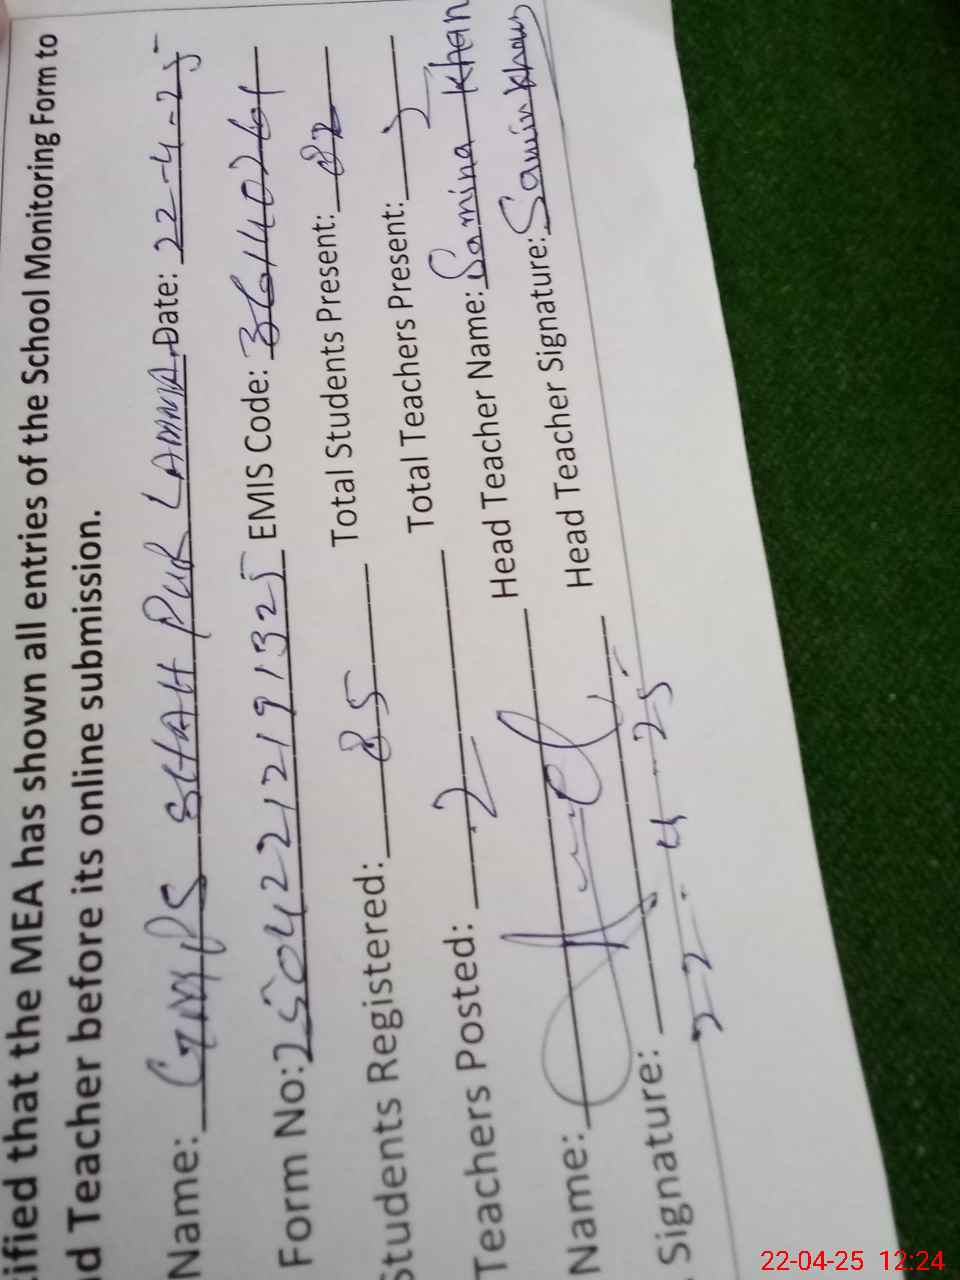 ified that the MEA has shown all entries of the School Monitoring Form to
d Teacher before its online submission.
Name: GMPS SHAH PUR LAMMA Date: 22-4-25
Form No: 2504221212191325 EMIS Code: 36140261
Students Registered: 85 Total Students Present: 82
Teachers Posted: 2 Total Teachers Present: 2
Name: Head Teacher Name: Samina Khan
Signature: Head Teacher Signature: Samina Khan
22-4-25
22-04-25 12:24